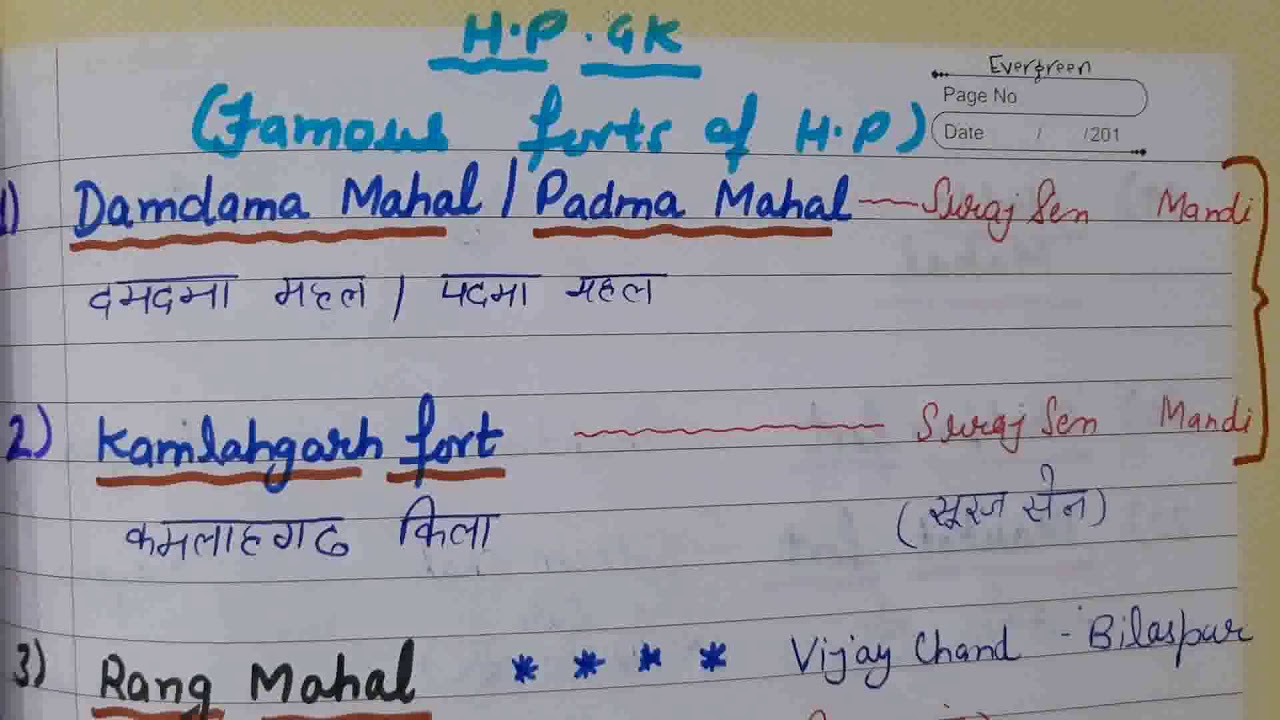 H.P. GK
Evergreen
Page No
Date / /201
(Famous forts of H.P)
1) Damdama Mahal / Padma Mahal — Suraj Sen Mandi
दमदमा महल / पदमा महल
2) Kamlahgarh fort — Suraj Sen Mandi
कमलाहगढ किला (सूरज सेन)
3) Rang Mahal * * * * Vijay Chand - Bilaspur